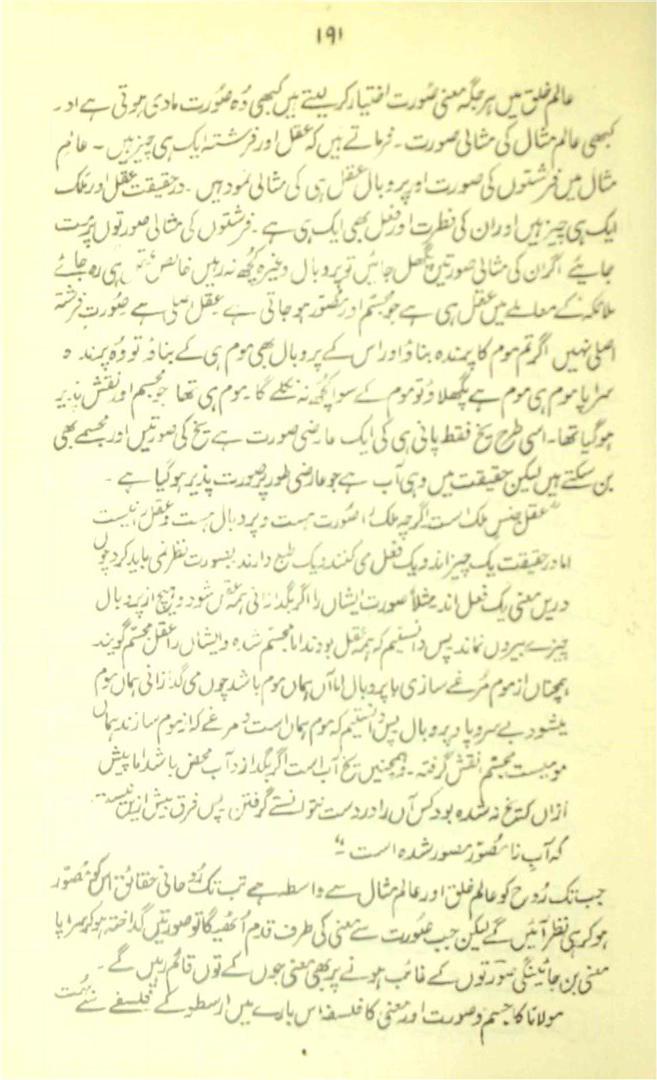 ۱۹۱
عالم خلق میں ہر جگہ معنی صورت اختیار کر لیتے ہیں کبھی وہ صورت مادی ہوتی ہے اور
کبھی عالم مثال کی مثالی صورت ۔ فرماتے ہیں کہ عقل اور فرشتہ ایک ہی چیز ہیں ۔ عالم
مثال میں فرشتوں کی صورت اور پر و بال عقل ہی کی مثالی نمود ہیں ۔ درحقیقت عقل اور ملک
ایک ہی چیز ہیں اور ان کی فطرت اور فعل بھی ایک ہی ہے ۔ فرشتوں کی مثالی صورتوں پر مت
جایئے اگر ان کی مثالی صورتیں پگھل جائیں تو پر و بال وغیرہ کچھ نہ رہیں خالص عقل ہی رہ جائے
ملائکہ کے معاملے میں عقل ہی ہے جو مجسم اور مصور ہو جاتی ہے عقل اصلی ہے صورت فرشتہ
اصلی نہیں اگر تم موم کا پرندہ بناؤ اور اس کے پر و بال بھی موم ہی کے بناؤ تو وہ پرندہ
سراپا موم ہی موم ہے پگھلاؤ تو موم کے سوا کچھ نہ نکلے گا ۔ موم ہی تھا جو مجسم اور نقش پذیر
ہو گیا تھا ۔ اسی طرح یخ فقط پانی ہی کی ایک عارضی صورت ہے یخ کی صورتیں اور مجسمے بھی
بن سکتے ہیں لیکن حقیقت میں وہی آب ہے جو عارضی طور پر صورت پذیر ہو گیا ہے ۔
"عقل جنس ملک است اگرچہ ملک را صورت ہست و پر و بال ہست و عقل را نیست
اما در حقیقت یک چیز اند و یک فعل می کنند و یک طبع دارند بصورت نظر نمی باید کرد چوں
دریں معنی یک فعل اند مثلاً صورت ایشاں را اگر بگدازانی ہمہ عقل شود و ہیچ از پر و بال
چیزے بیروں نماند پس دانستیم کہ ہمہ عقل بودند اما مجسم شدہ و ایشاں را عقل مجسم گویند
ہمچناں از موم مرغے سازی با پر و بال اما آں ہماں موم باشد چوں می گدازانی ہماں موم
میشود بے سر و پا و پر و بال پس دانستیم کہ موم ہماں است و مرغے کہ از موم سازند ہماں
مومیست مجسم نقش گرفتہ ۔ و ہمچنیں یخ آب است اگر بگدازد آب محض باشد اما پیش
ازاں کہ یخ نہ شدہ بود کس آں را در دست نتوانستے گرفتن ۔ پس فرق بیش ازیں نیست
کہ آب نا مصور مصور شدہ است ۔"
جب تک روح کو عالم خلق اور عالم مثال سے واسطہ ہے تب تک روحانی حقائق اس کو مصور
ہو کر ہی نظر آئیں گے لیکن جب صورت سے معنی کی طرف قدم اٹھیگا تو صورتیں گداختہ ہو کر سراپا
معنی بن جائینگی صورتوں کے غائب ہونے پر بھی معنی جوں کے توں قائم رہیں گے ۔
مولانا کا جسم و صورت اور معنی کا فلسفہ اس بارے میں ارسطو کے فلسفے سے بہت